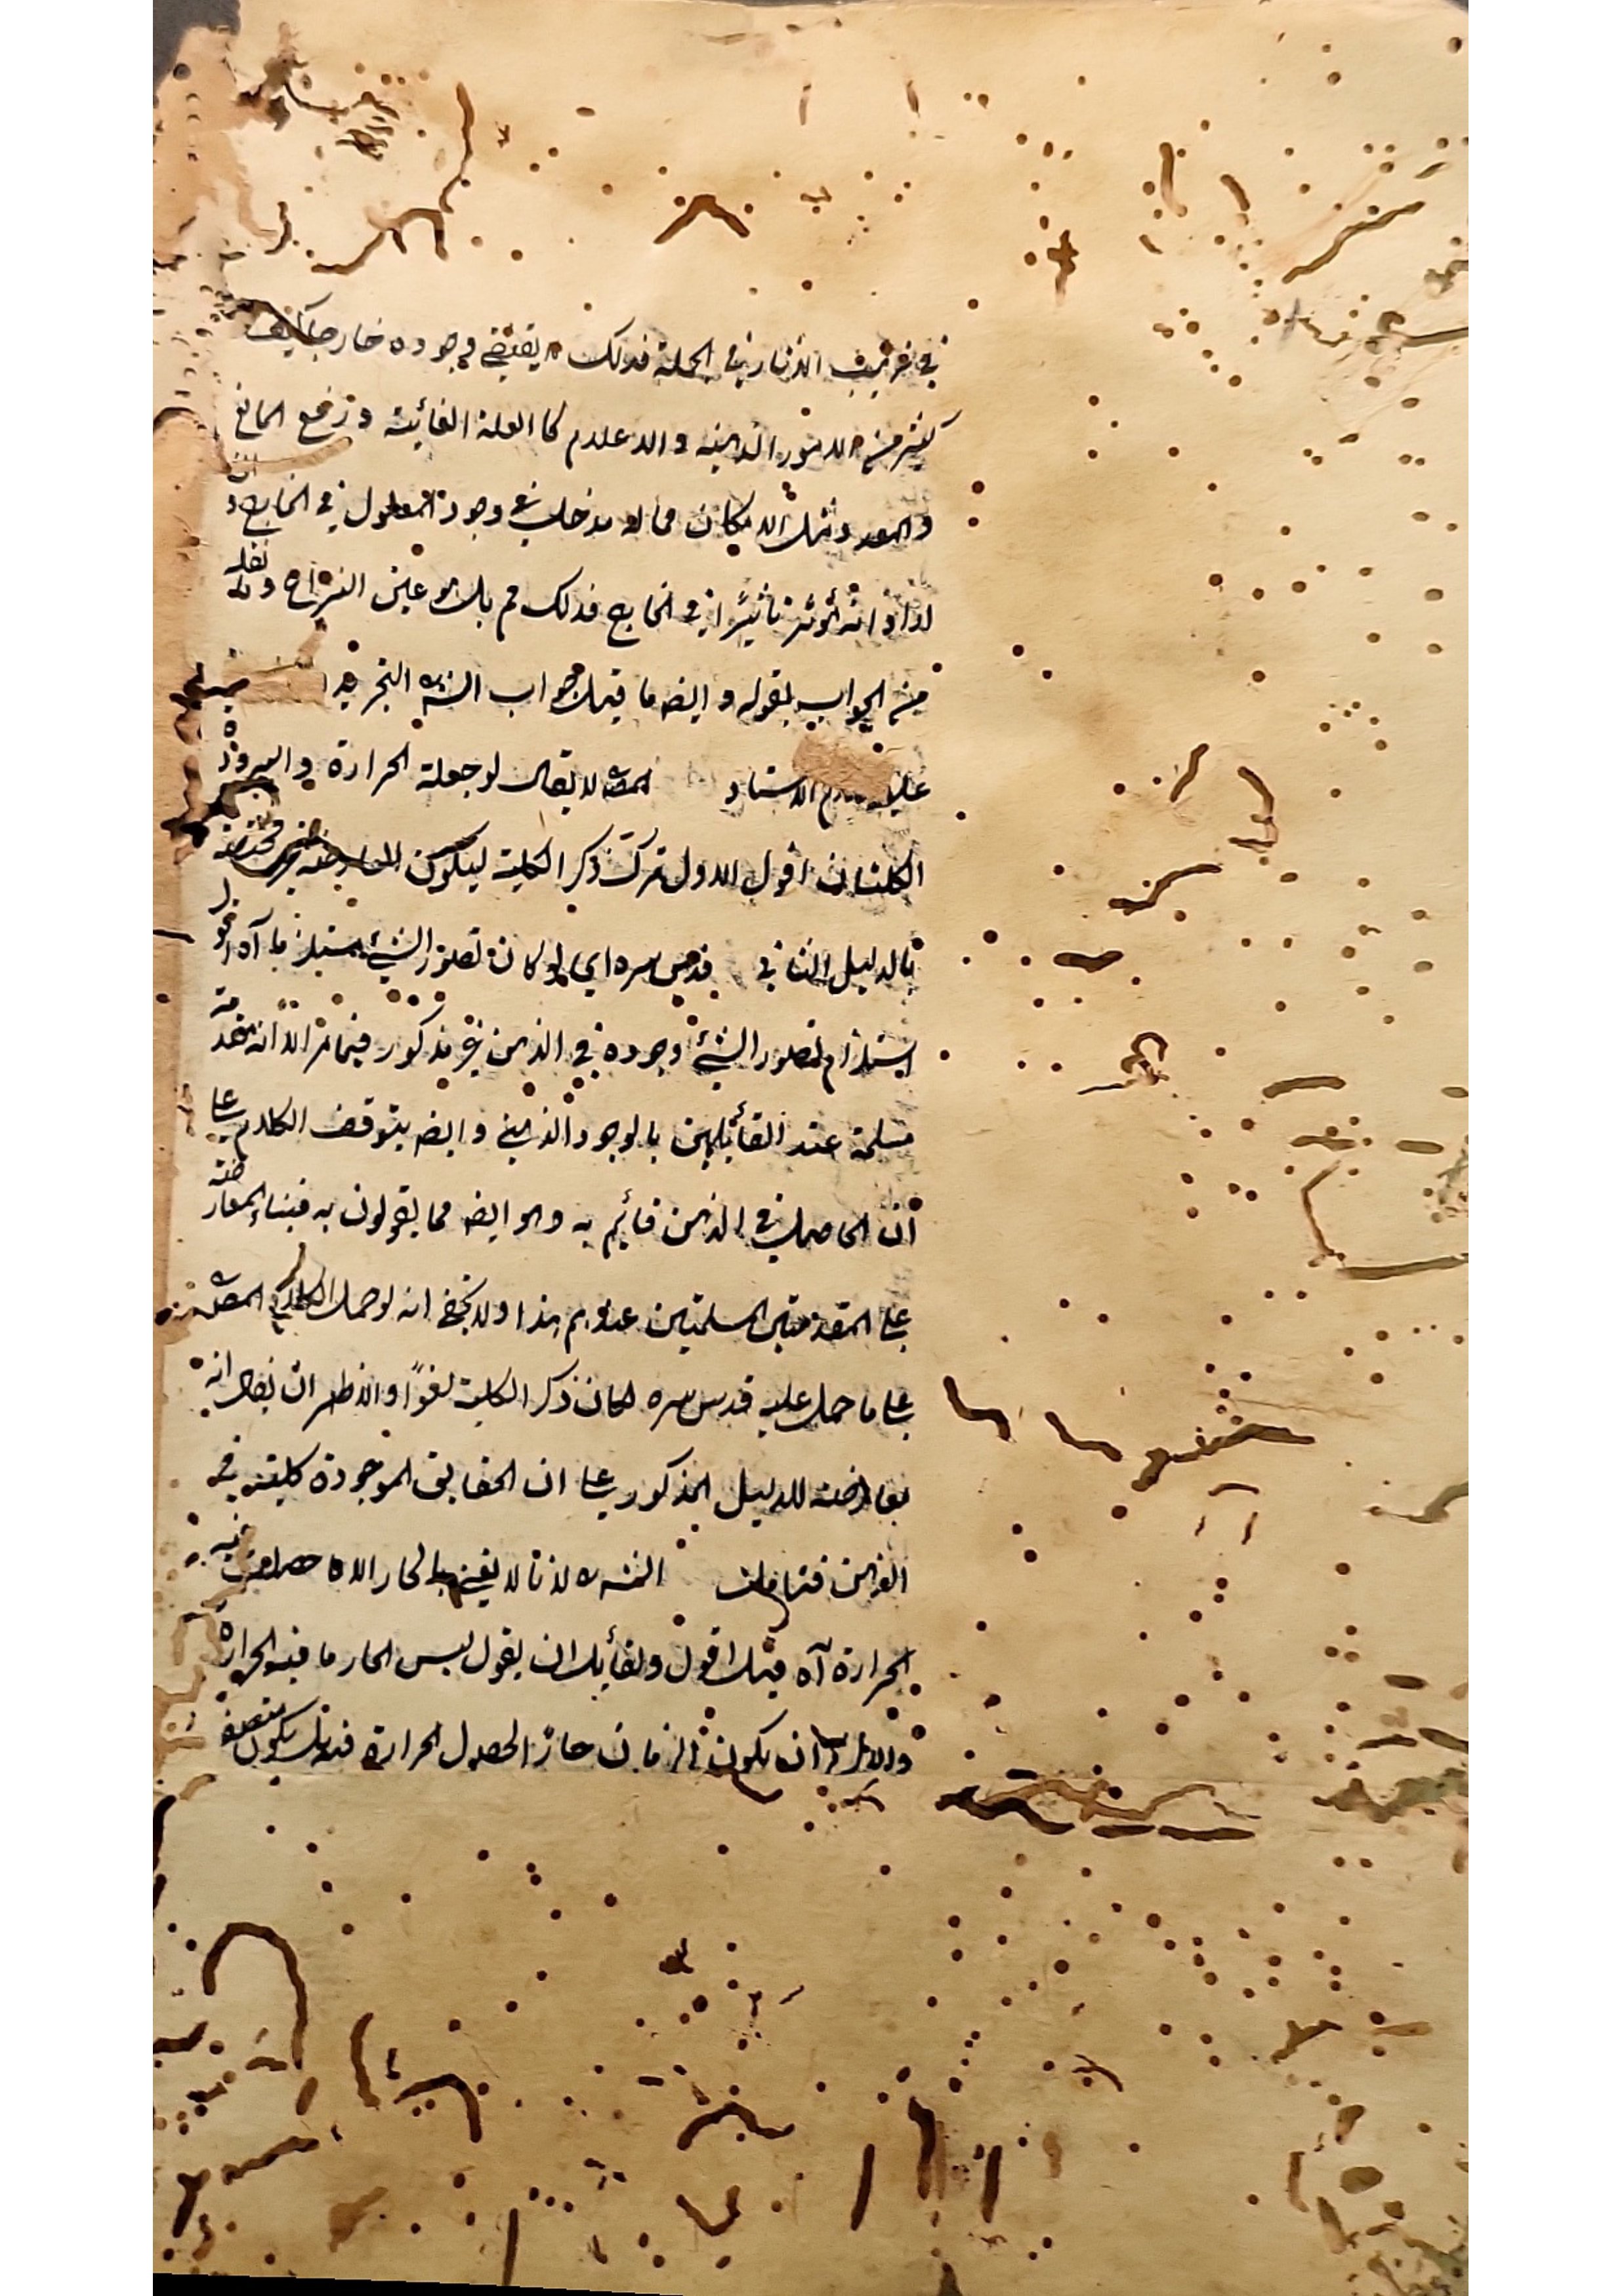 في ترتيب الآثار في الجملة فذلك لا يقتضي وجوده خارجا كيف
كثير من الامور الذهنية والاعدام كا العلة الغائية ورفع المانع
والمعد ومثل الامكان مما له مدخل في وجود المعلول في الخارج و ان
ارادوا انه مؤثر تاثيرًا في الخارج فذلك هم بل هو عين النزاع و نقله
من الجواب بقوله وايضا ما قيل جواب الشه التجريد
عليه الاستاد المصه لا يقال لو جعلت الحرارة والبرودة
الكليتان اقول الاول ترك ذكر الكلية ليكون المعارضة مختصة
بالدليل الثاني قدس سره اي لو كان تصور الشئ يستلزم آه اقول
استلزام تصور الشئ وجوده في الذهن غير مذكور فيما مر الا انه مقدمة
مسلمة عند القائلين بالوجود الذهني وايضا يتوقف الكلام على
ان الحاصل في الذهن قائم به وهو ايضا مما يقولون به فبناء المعارضة
على المقدمتين المسلمتين عندهم هذا ولا يخفى انه لو حمل الكلام المصه
على ما حمل عليه قدس سره لكان ذكر الكلية لغوًا والاظهر ان يقال انه
معارضة للدليل المذكور على ان الحقايق الموجودة كلية في
الذهن فتامل الشه لانا لا نعني بالحار الا ما حصل فيه
الحرارة آه قيل اقول ولقائل ان يقول ليس الحار ما فيه الحرارة
والا لزم ان يكون الزمان حارًّا لحصول الحرارة فيه بل يكون متصفة